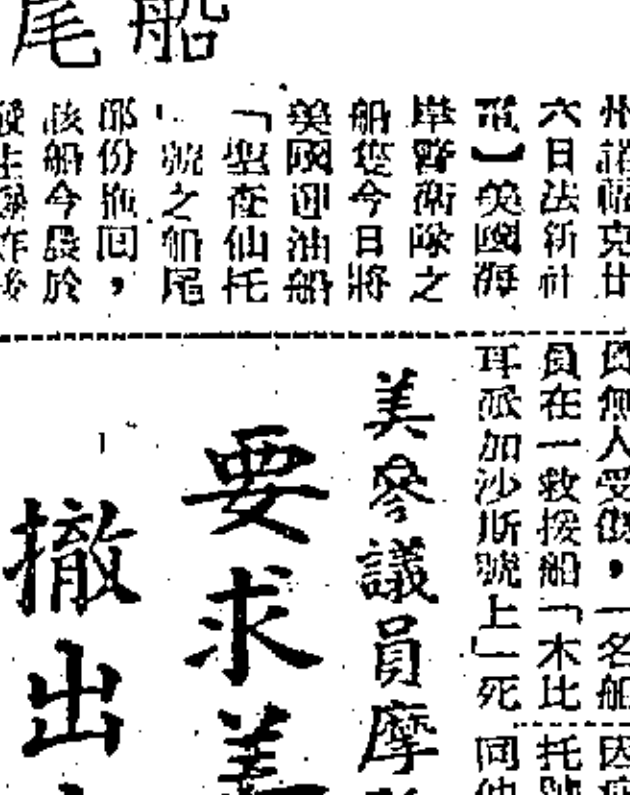 船尾
州諾福克廿
六日法新社
電】美國海
岸警衛隊之
船隻今日將
美國迎油船
「聖查仙托
」號之船尾
部份拖回，
該船今晨於
發生爆炸後
無人受傷，一名船
員在一救援船「木比
耳派加沙斯號上」死
因
托號
同
美參議員摩
要求美
撤出